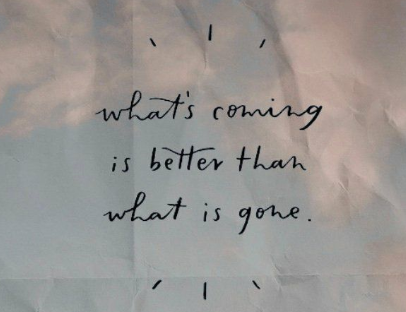 what's coming
is better than
what is gone.